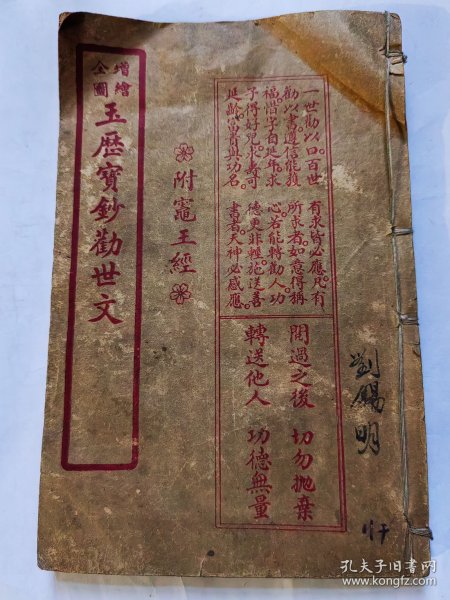 一世勸以口百世
勸以書遵信能穫
福惜字自延年求
子得好兒求壽可
延齡富貴與功名
有求皆必應凡有
所求者如意得稱
心若能轉勸人功
德更非輕施送善
書者天神必感應
閱過之後 切勿拋棄
轉送他人 功德無量
附竈王經
增繪
全圖
玉歷寶鈔勸世文
劉錫明
孔夫子旧书网
www.kongfz.com